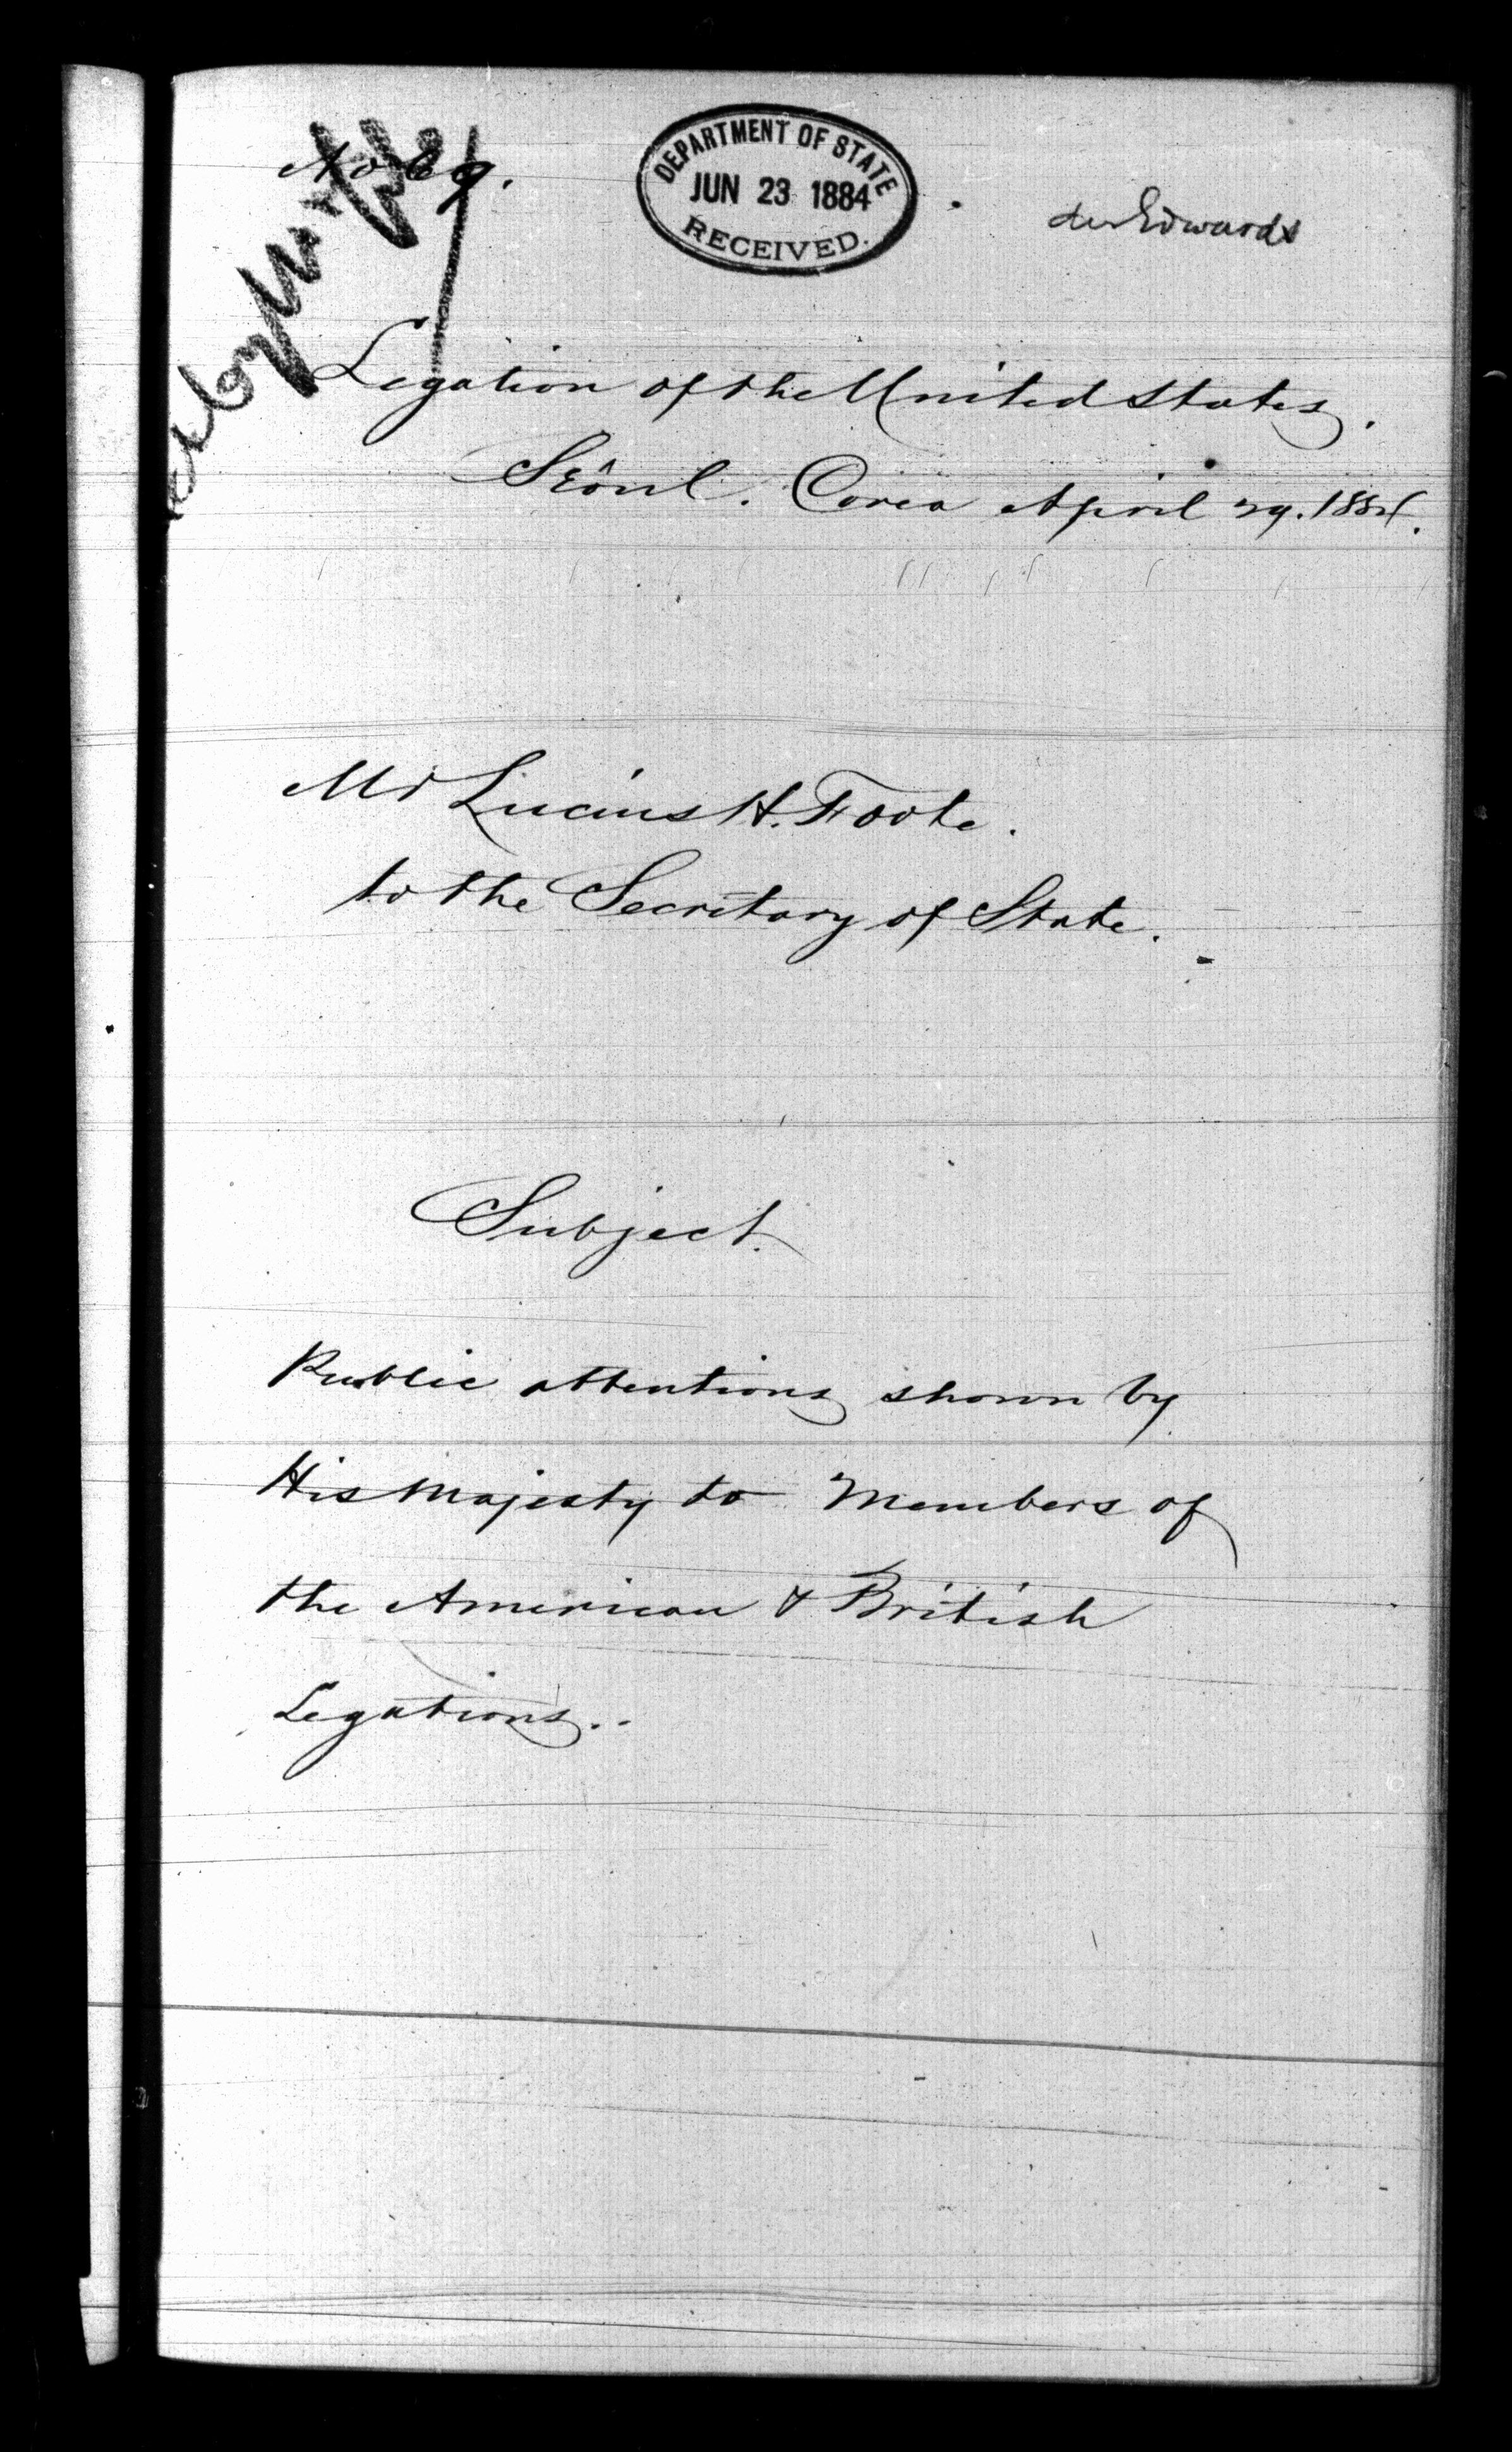 No 69.
DEPARTMENT OF STATE
JUN 23 1884
RECEIVED.
Edwards
Legation of the United States.
Seôul. Corea April 29. 1884.
Mr Lucius H. Foote.
to the Secretary of State.
Subject.
Public attentions shown by
His Majesty to Members of
the American & British
Legations..